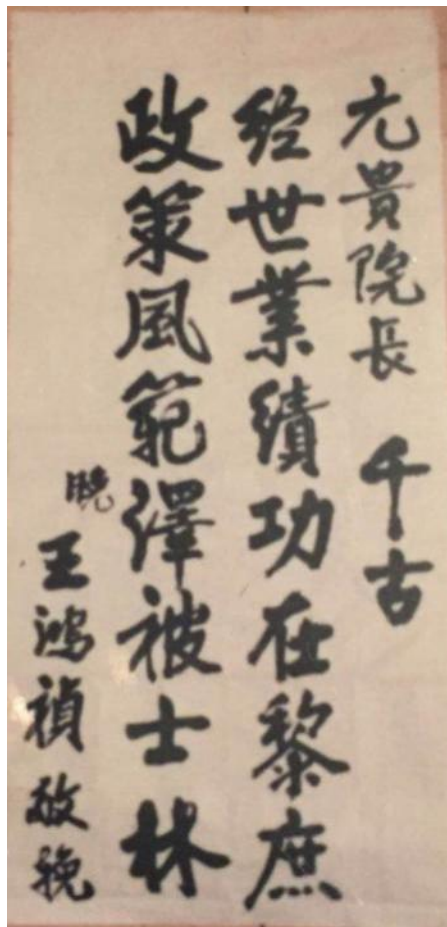 元貴院長 千古
经世業績功在黎庶
政策風範澤被士林
晚 王鴻禎敬挽